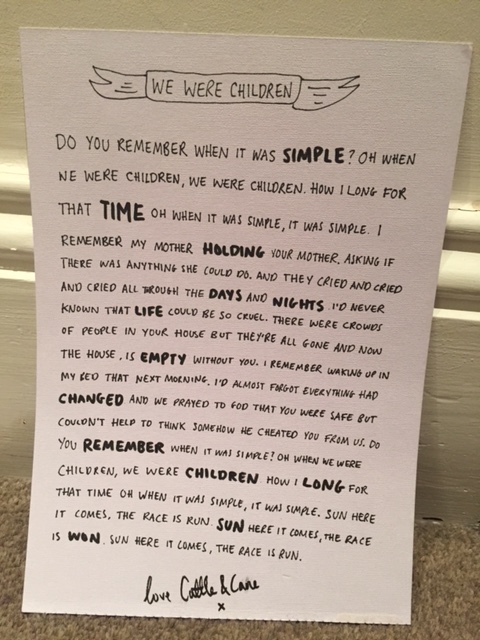 WE WERE CHILDREN
DO YOU REMEMBER WHEN IT WAS SIMPLE? OH WHEN
WE WERE CHILDREN, WE WERE CHILDREN. HOW I LONG FOR
THAT TIME OH WHEN IT WAS SIMPLE, IT WAS SIMPLE. I
REMEMBER MY MOTHER HOLDING YOUR MOTHER, ASKING IF
THERE WAS ANYTHING SHE COULD DO. AND THEY CRIED AND CRIED
AND CRIED ALL THROUGH THE DAYS AND NIGHTS. I'D NEVER
KNOWN THAT LIFE COULD BE SO CRUEL. THERE WERE CROWDS
OF PEOPLE IN YOUR HOUSE BUT THEY'RE ALL GONE AND NOW
THE HOUSE, IS EMPTY WITHOUT YOU. I REMEMBER WAKING UP IN
MY BED THAT NEXT MORNING. I'D ALMOST FORGOT EVERYTHING HAD
CHANGED AND WE PRAYED TO GOD THAT YOU WERE SAFE BUT
COULDN'T HELP TO THINK SOMEHOW HE CHEATED YOU FROM US. DO
YOU REMEMBER WHEN IT WAS SIMPLE? OH WHEN WE WERE
CHILDREN, WE WERE CHILDREN. HOW I LONG FOR
THAT TIME OH WHEN IT WAS SIMPLE, IT WAS SIMPLE. SUN HERE
IT COMES, THE RACE IS RUN. SUN HERE IT COMES, THE RACE
IS WON. SUN HERE IT COMES, THE RACE IS RUN.
love Cattle & Cane
x